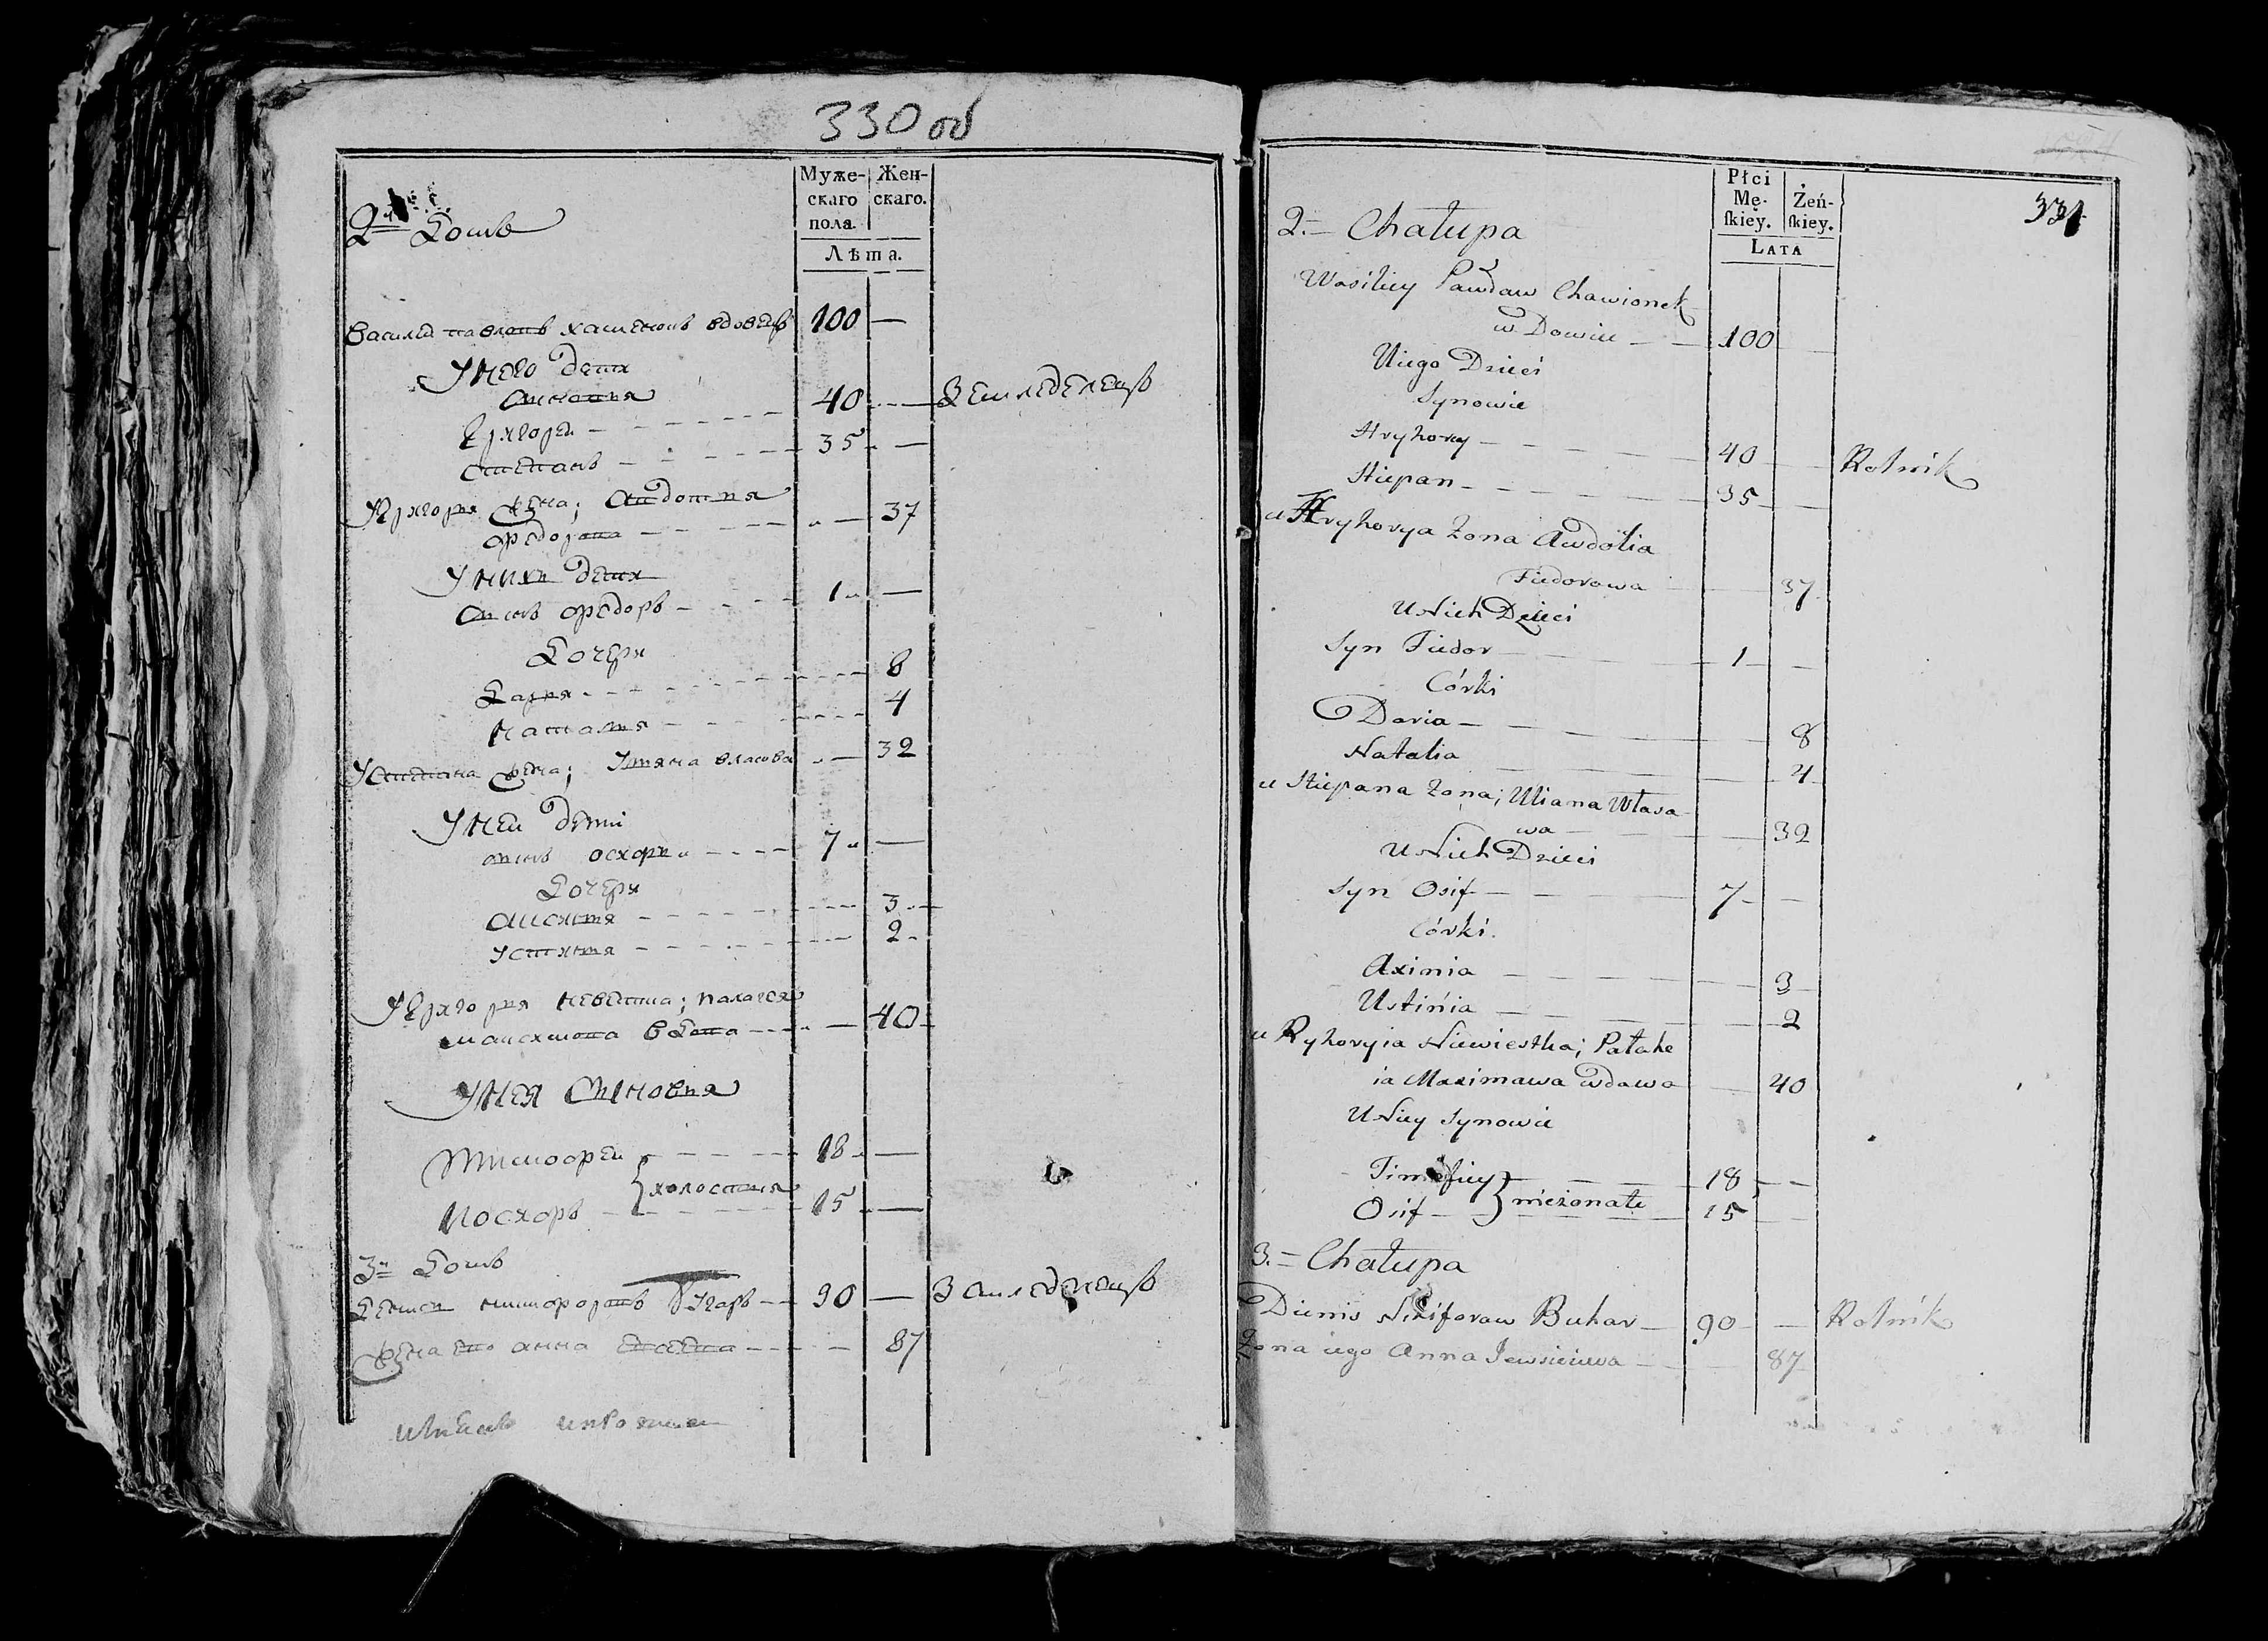 330 об
Муже-
скаго
пола.
Жен-
скаго.
Лѣта.
2й Домъ
Василей павловъ вдовецъ 100 —
У него дети
Сыновья
Григорей - - - 40 - — Земледелецъ
Степанъ - - - 35 - —
У Григоря жена; Авдотья
Федорова - - - — 37
У нихъ дети
Сынъ Федоръ - - - 1 —
Дочери
Дарья - - - 8
Наталья - - - 4
У Степана жена; Ульяна власова — 32
У неи дети
сынъ осипъ - - - 7 —
Дочери
- - - 3 —
Устинья - - - 2 -
У Григоря невестка; палагея
максимова вдова - - - — 40
У нея Сыновья
Тимофеи - - - 18 - —
холостыя
Иосифъ - - - 15 - —
3й Домъ
Денисъ никифоровъ - - 90 — Земледелецъ
жена ево анна - - - — 87
331
Płci
Mę-
ſkiey.
Żeń-
ſkiey.
LATA
2.- Chałupa
Wasiliey Pawław Chawionek
w Dowiec — — 100 —
Uiego Dzieci
Synowie
Hryhorey — — 40 — Rolnik
Stiepan — — 35 —
u Hryhorya Żona Awdotia
Fiedorowa — — 37
U Nich Dzieci
Syn Fiedor — — 1 —
Córki
Daria — — 8
Natalia — — 4
u Stiepana Żona; Uliana Własa
wa — — 32
U Nich Dzieci
Syn Osif — — 7 —
Córki.
Axinia — — 3
Ustińia — — 2
u Ryhoryia Niewiestka; Pałahe
ia Maximawa wdawa — 40
U Niey Synowie
Timofiey — — 18 —
nieżonate
Osif — — 15 —
3.= Chałupa
Dienis Nikiforaw Buhar — 90 — Rolnik
Żona iego Anna Jewsieiewa — — 87